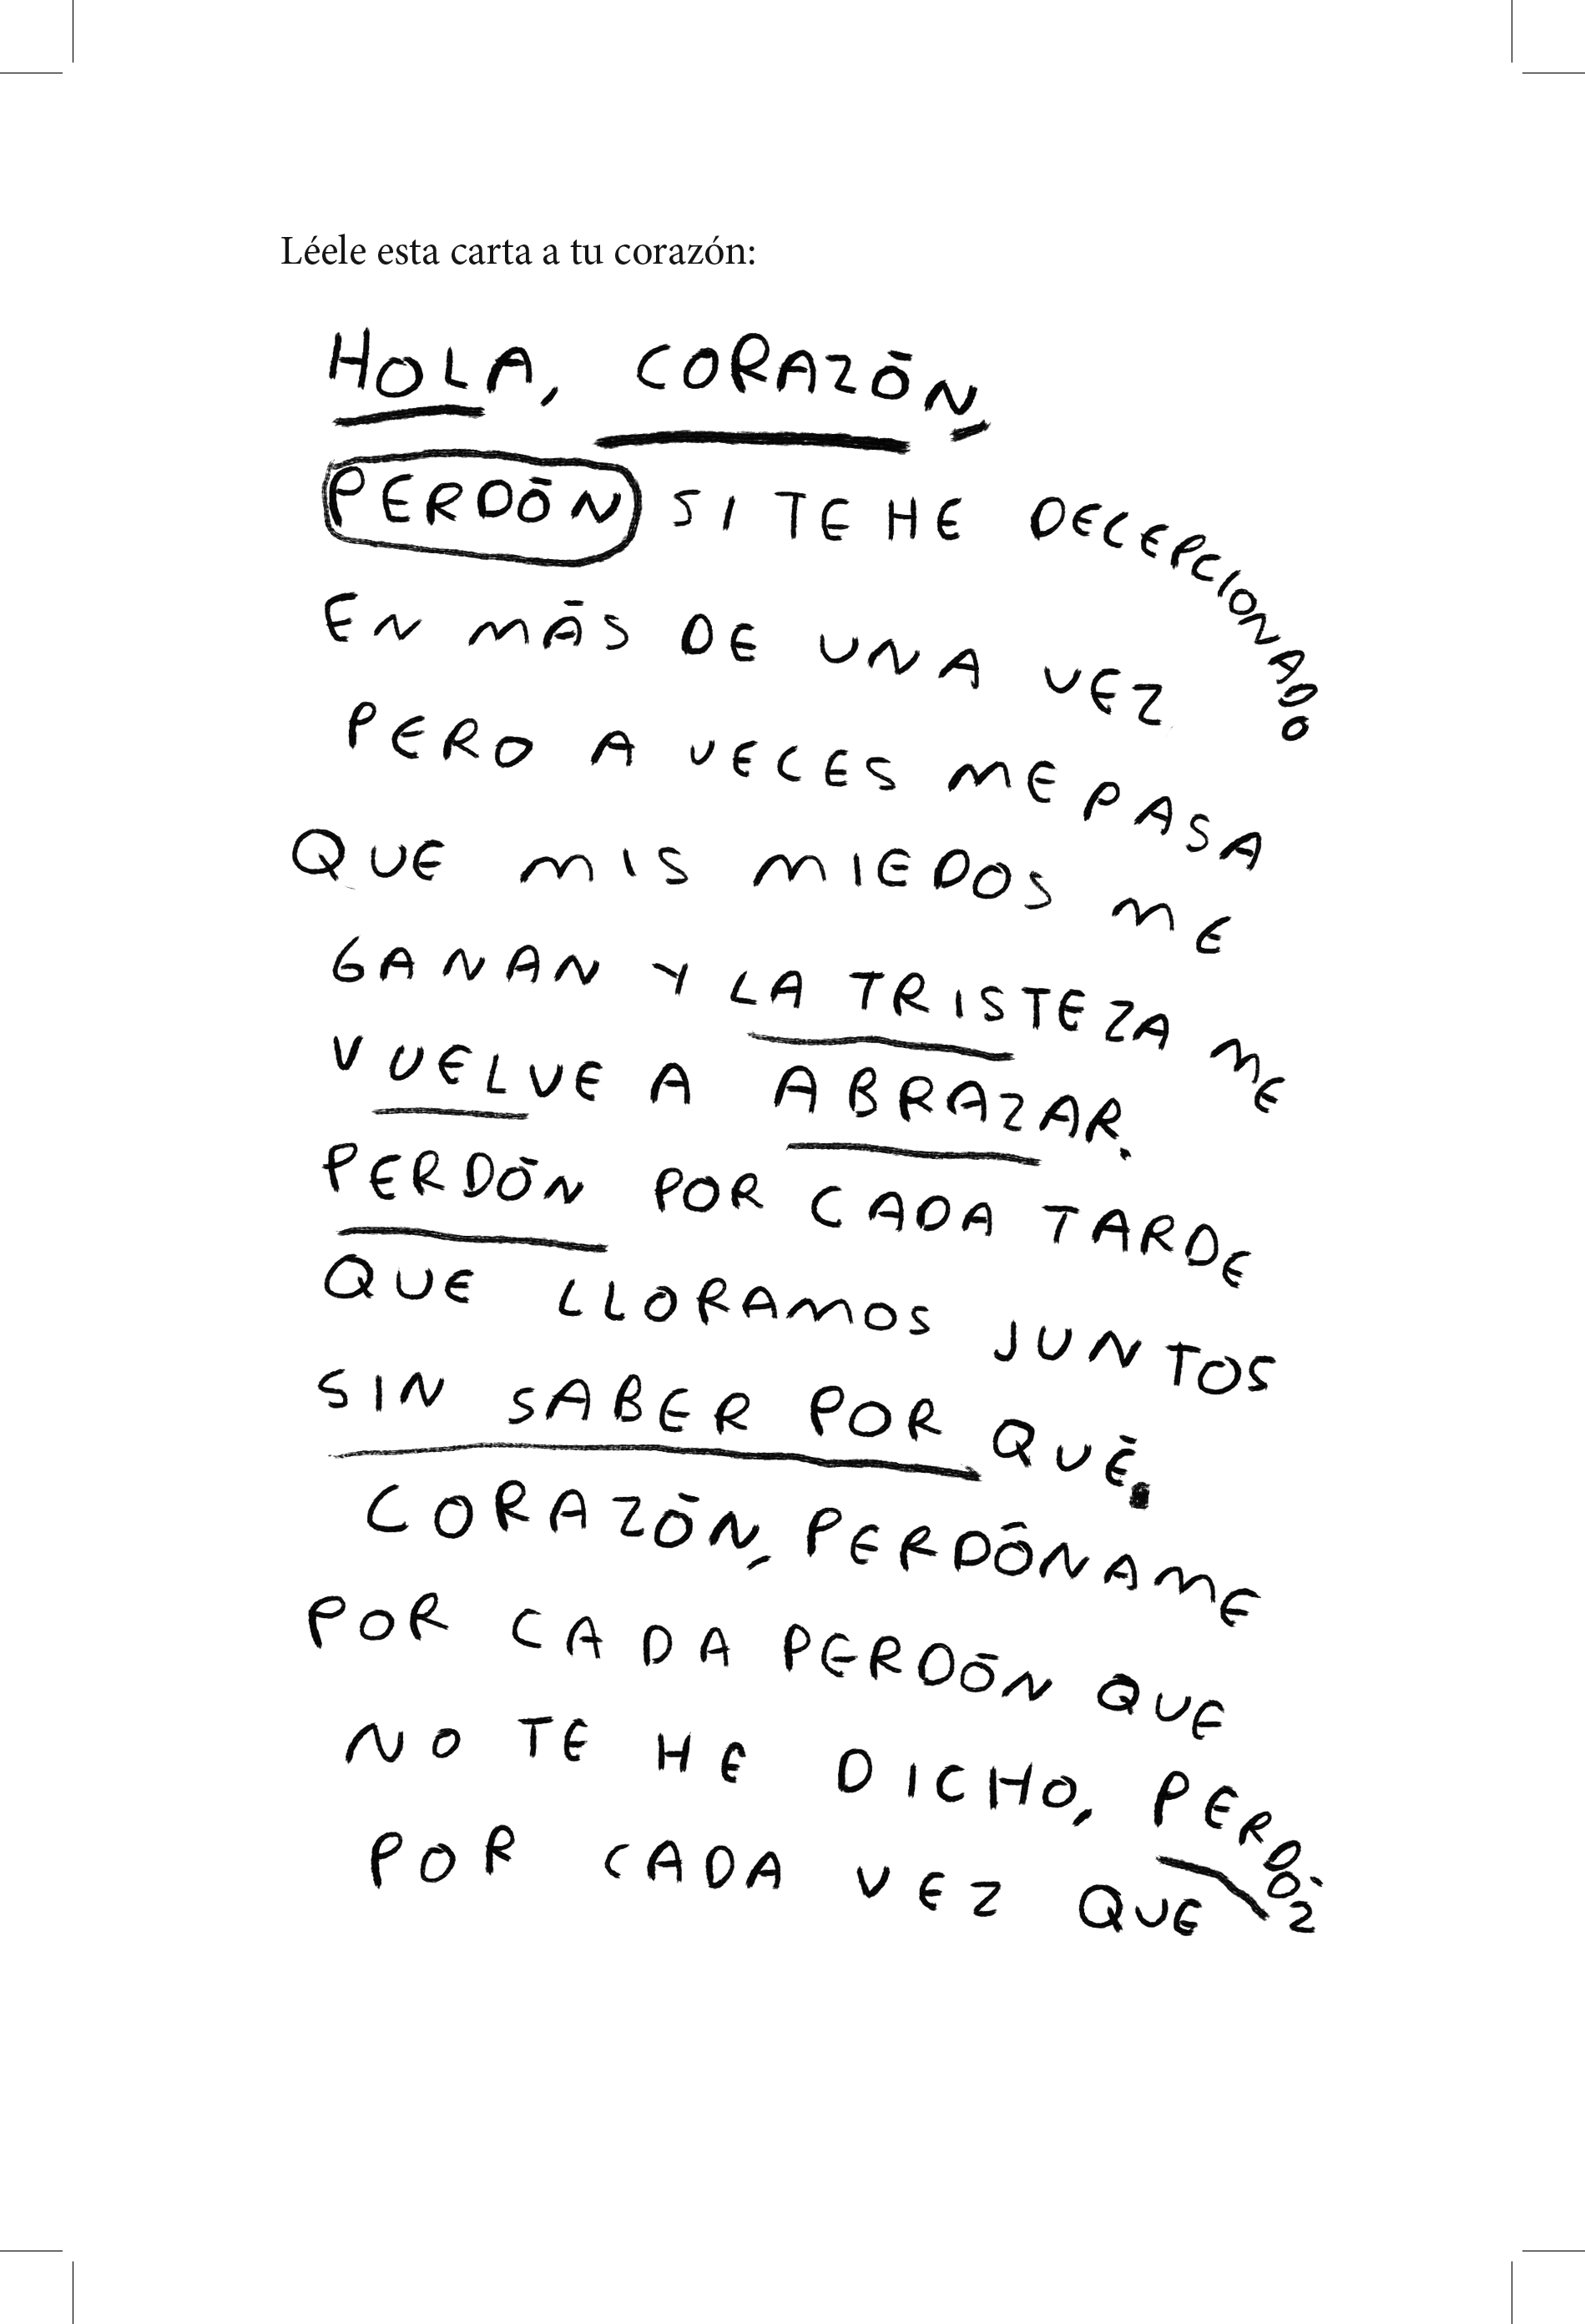 Léele esta carta a tu corazón:
HOLA, CORAZÓN,
PERDÓN SI TE HE DECEPCIONADO
EN MÁS DE UNA VEZ
PERO A VECES ME PASA
QUE MIS MIEDOS ME
GANAN Y LA TRISTEZA ME
VUELVE A ABRAZAR.
PERDÓN POR CADA TARDE
QUE LLORAMOS JUNTOS
SIN SABER POR QUÉ.
CORAZÓN, PERDÓNAME
POR CADA PERDÓN QUE
NO TE HE DICHO, PERDÓN
POR CADA VEZ QUE